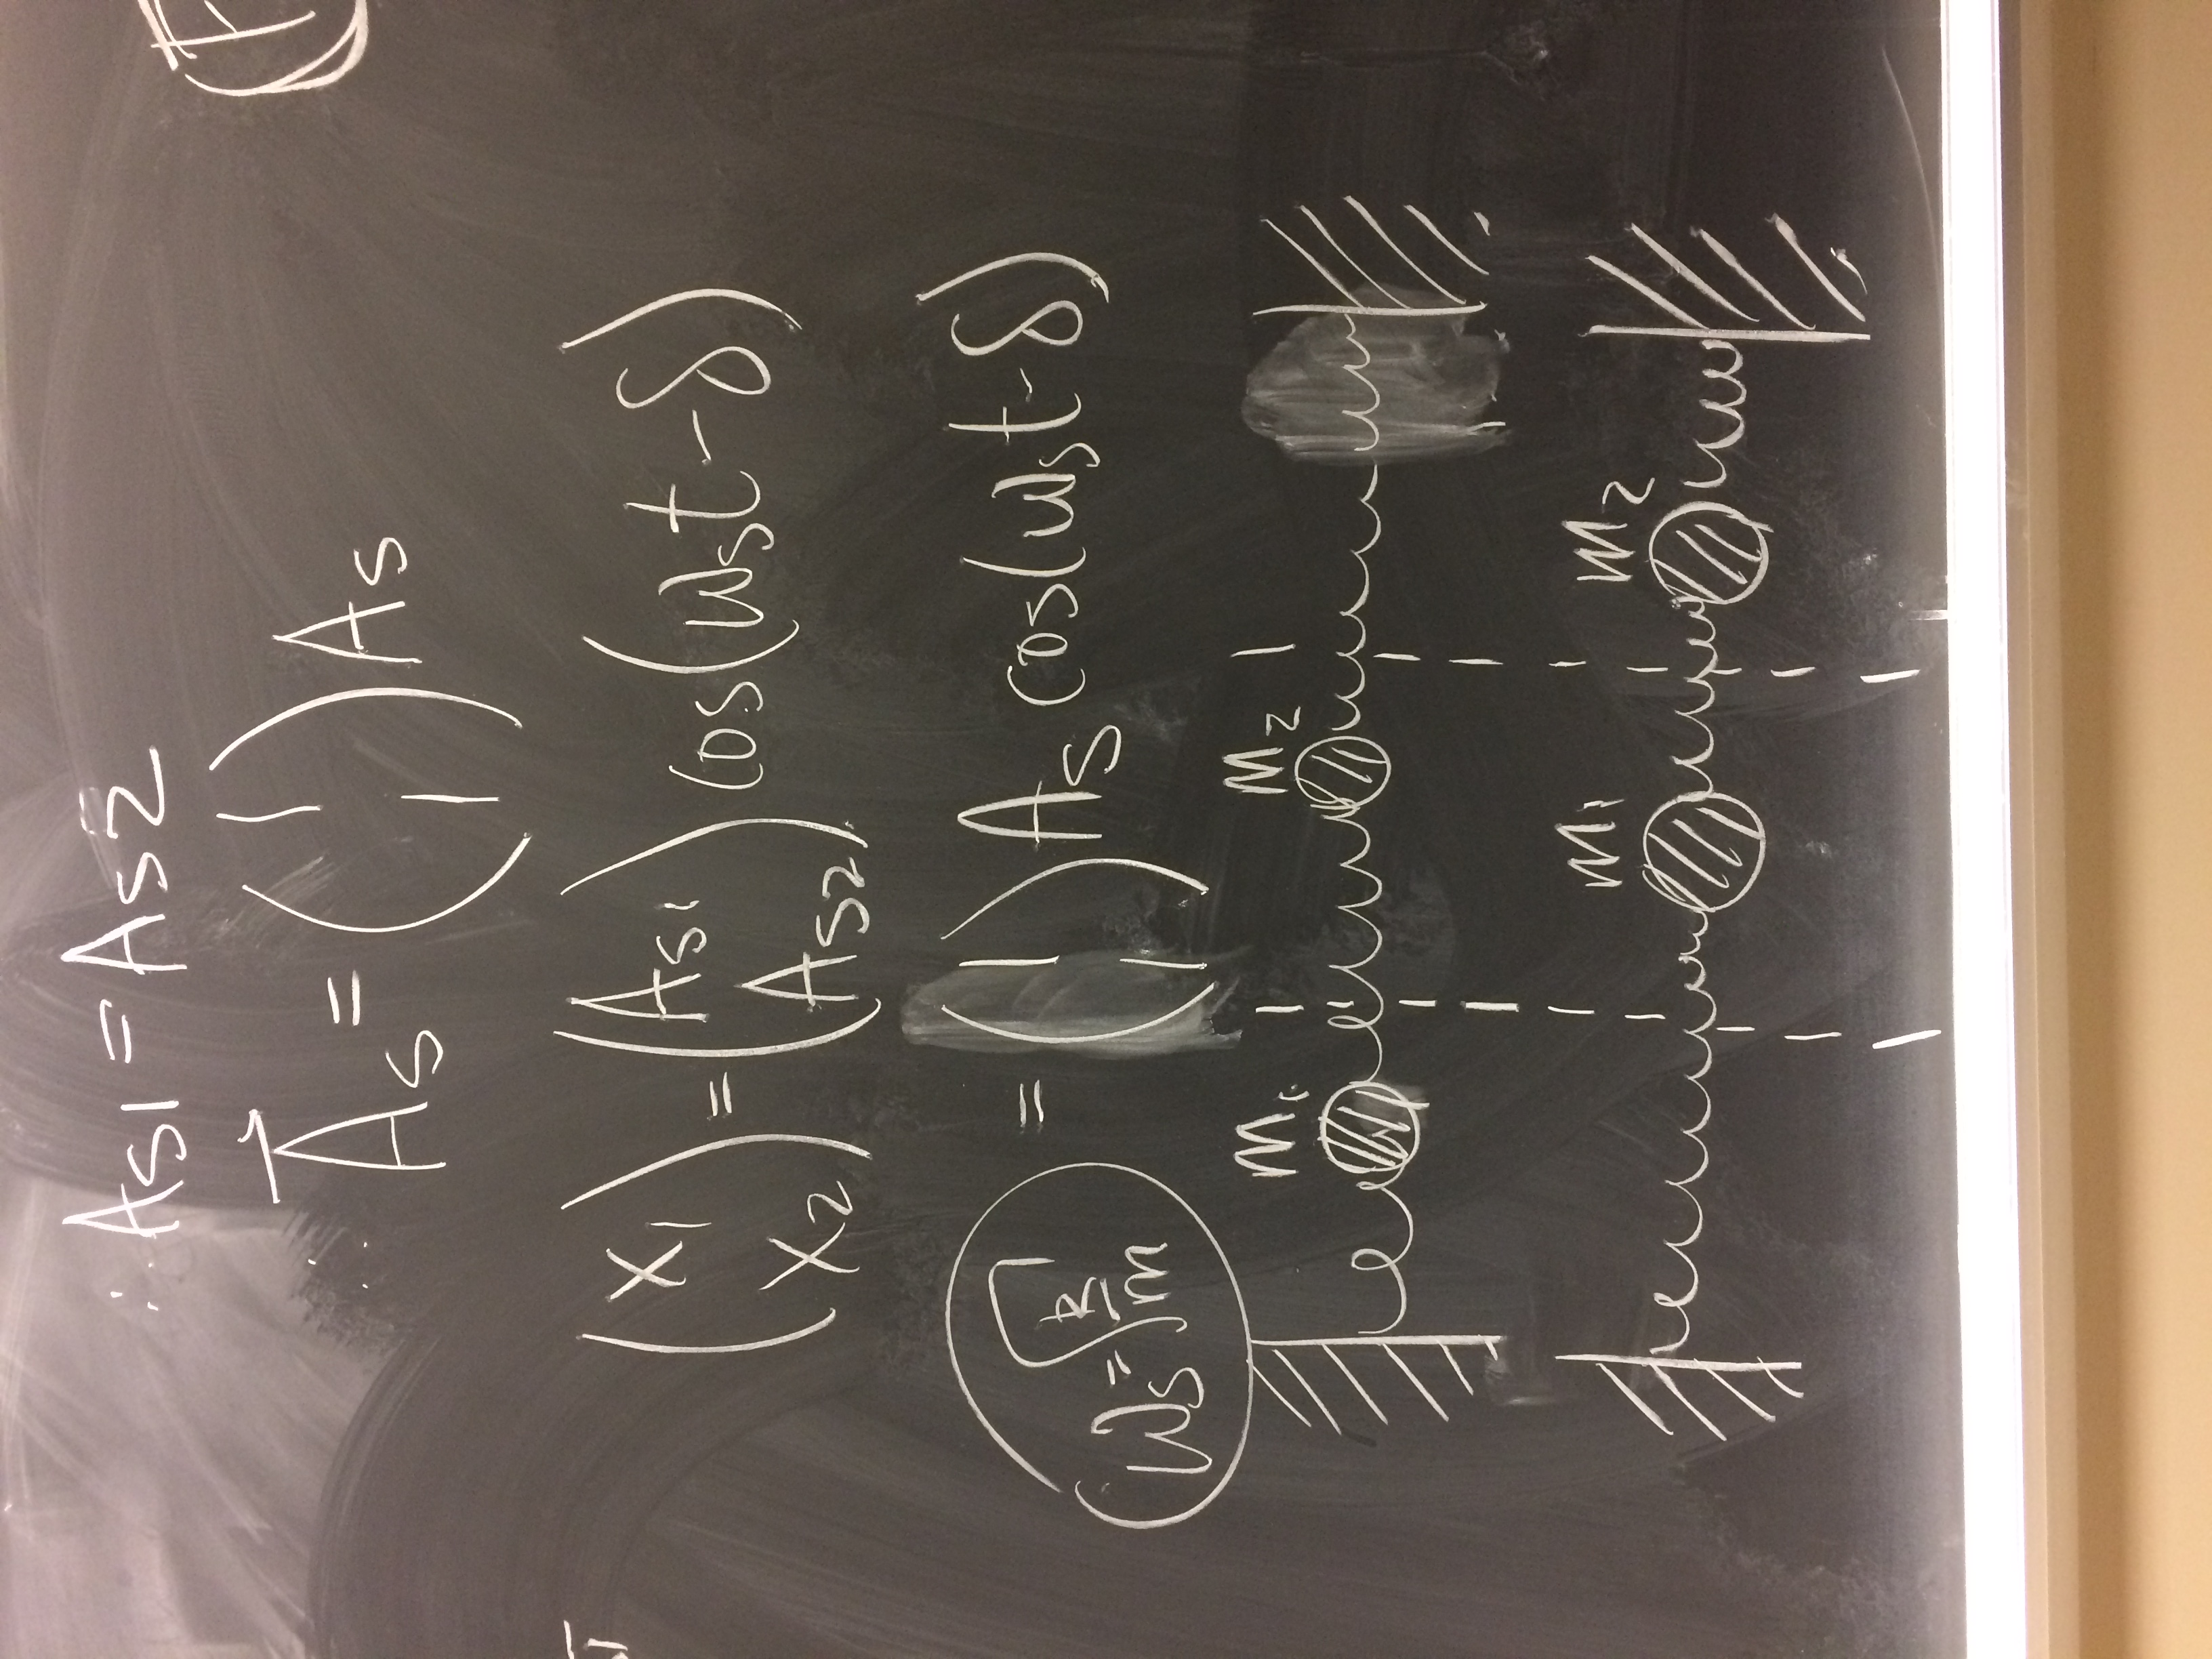 ∴ As1 = As2
∴ A⃗s = (1 1) As
(x1 x2) = (As1 As2) cos(ωst-δ)
= (1 1) As cos(ωst-δ)
ωs = √k/m
m1 m2
m1 m2